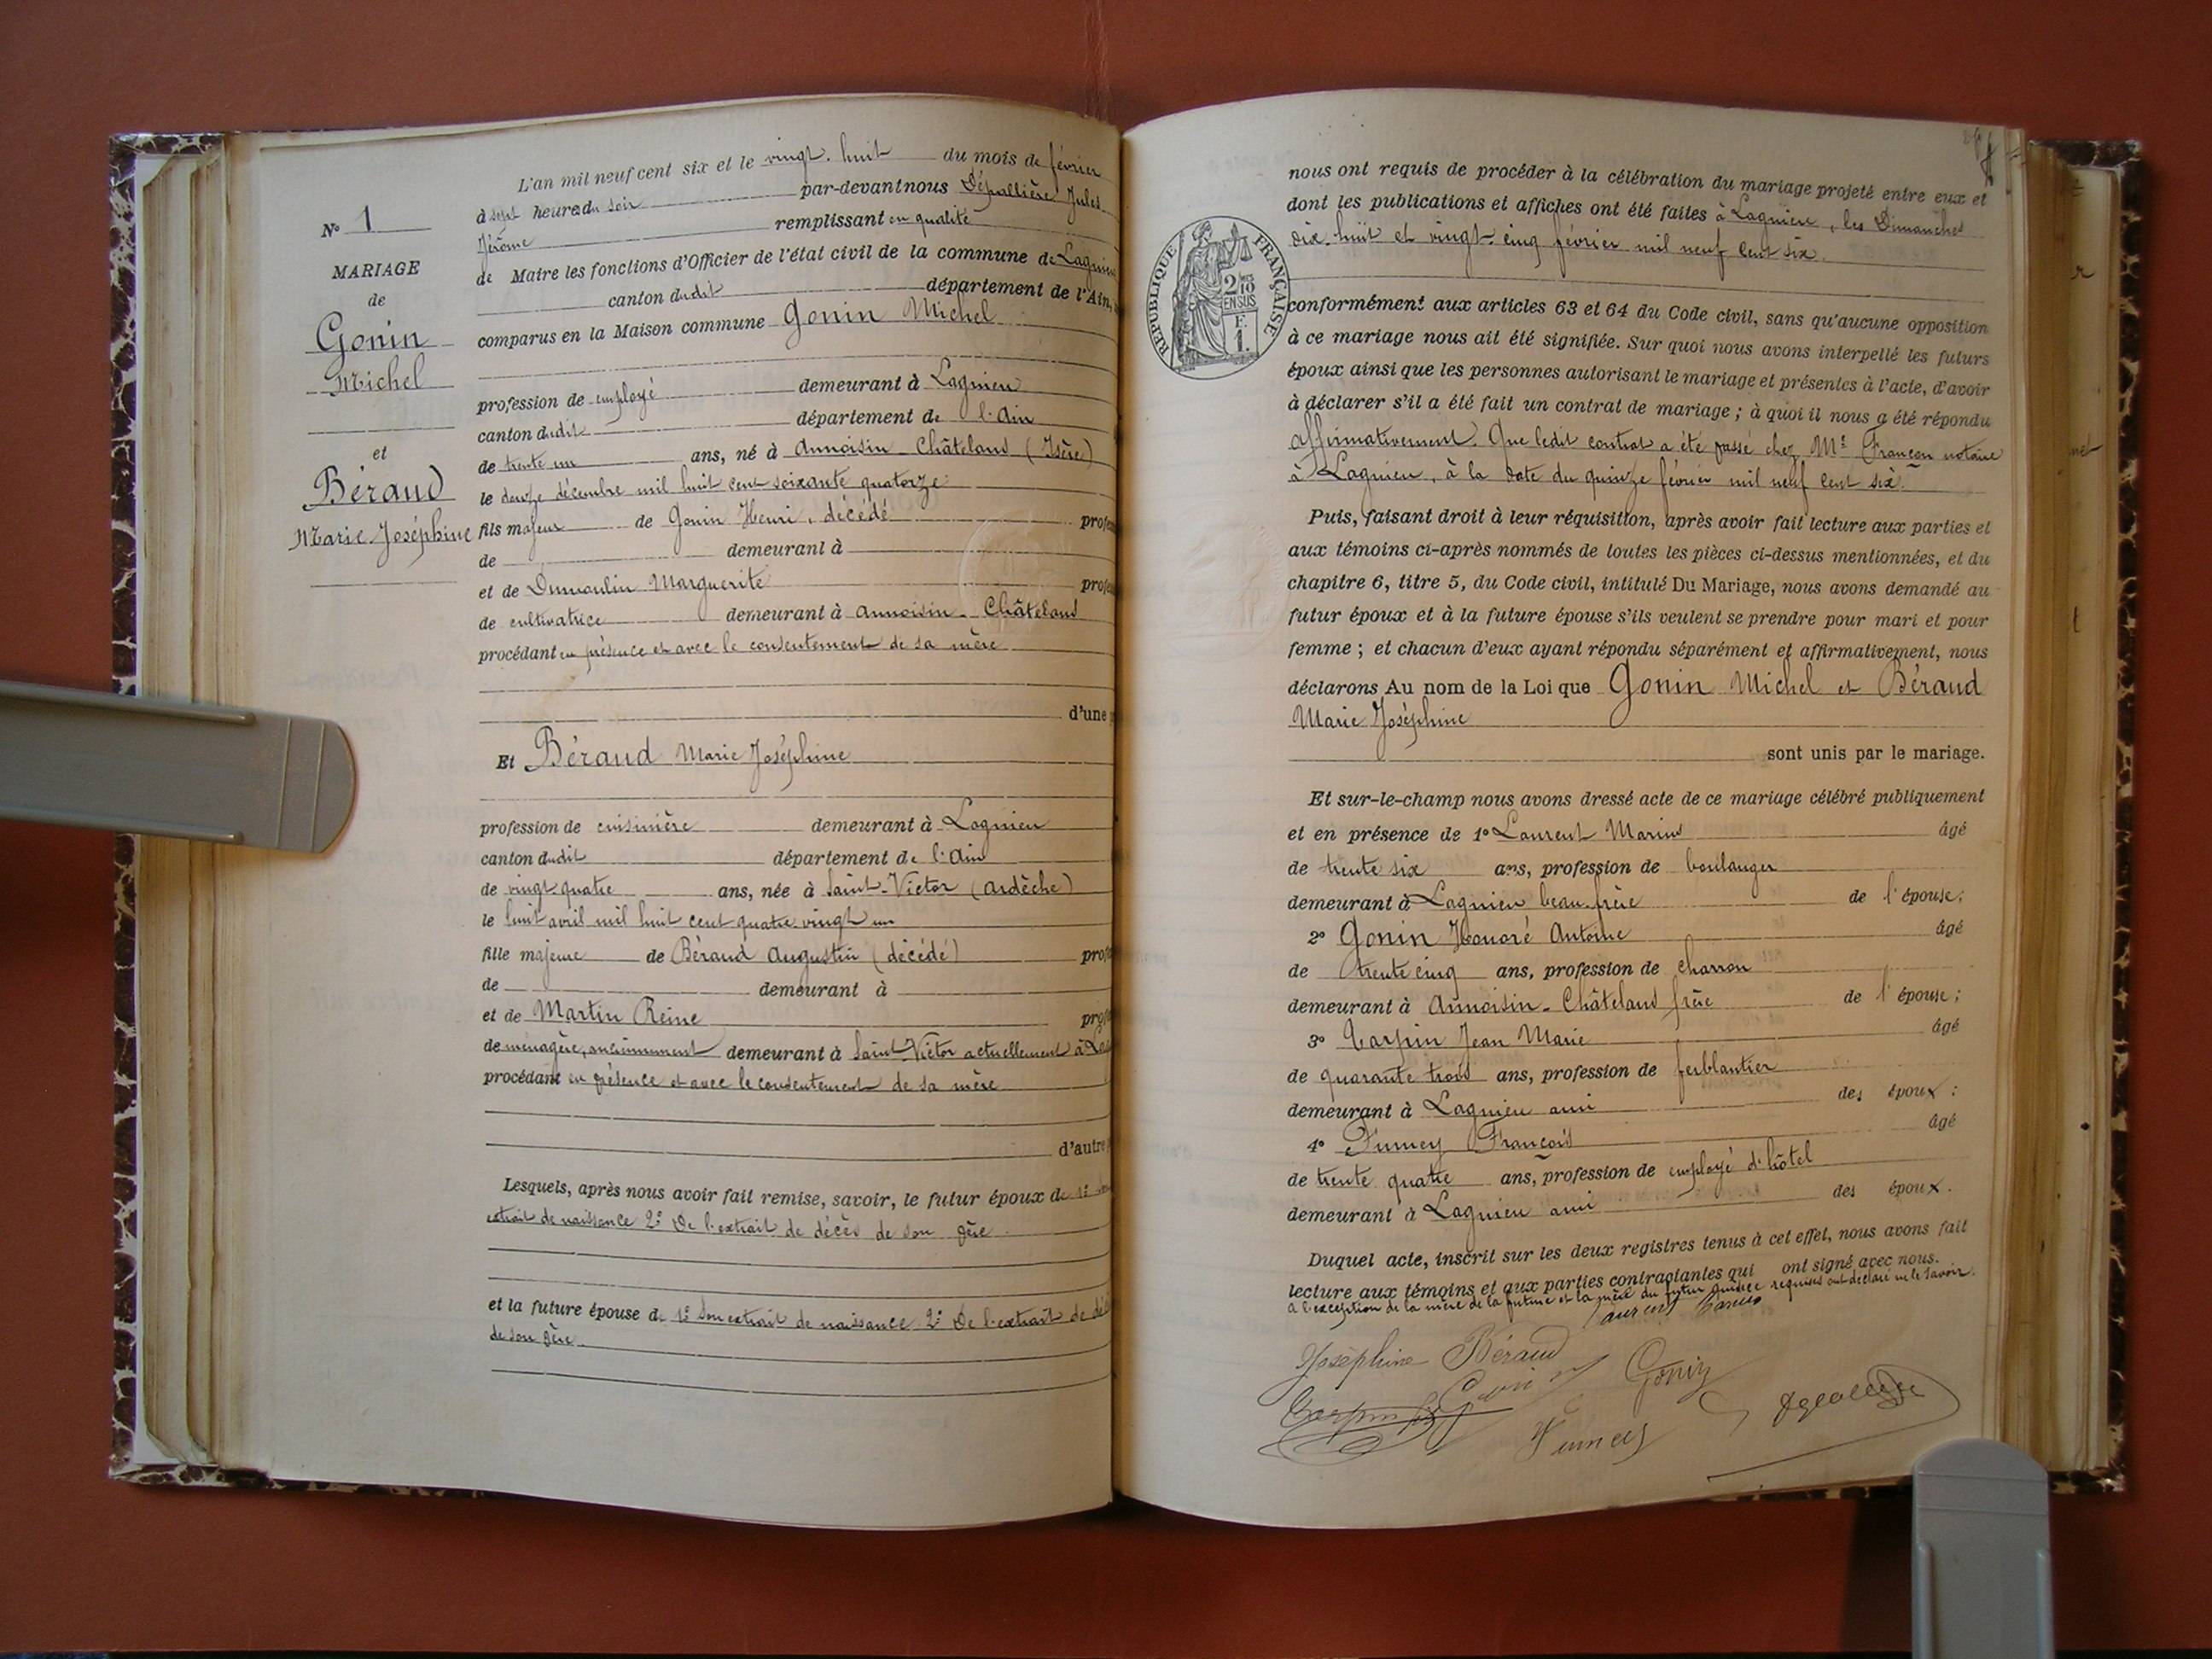 N° 1
MARIAGE
de
Gonin
Michel
et
Béraud
Marie Joséphine
L'an mil neuf cent six et le vingt-huit du mois de février
à sept heures du soir par-devant nous Dépallière Jules
Jérôme remplissant en qualité
de Maire les fonctions d'Officier de l'état civil de la commune de Lagnieu
canton dudit département de l'Ain,
comparus en la Maison commune Gonin Michel
profession de employé demeurant à Lagnieu
canton dudit département de l'Ain
de trente un ans, né à Annoisin-Châtelans (Isère)
le douze décembre mil huit cent soixante quatorze
fils majeur de Gonin Henri, décédé profes
de demeurant à
et de Dumoulin Marguerite profes
de cultivatrice demeurant à Annoisin-Châtelans
procédant en présence et avec le consentement de sa mère
d'une p
Et Béraud Marie Joséphine
profession de cuisinière demeurant à Lagnieu
canton dudit département de l'Ain
de vingt quatre ans, née à Saint-Victor (Ardèche)
le huit avril mil huit cent quatre-vingt un
fille majeure de Béraud Augustin (décédé) profe
de demeurant à
et de Martin Reine profe
de ménagère, anciennement demeurant à Saint-Victor actuellement à La
procédant en présence et avec le consentement de sa mère
d'autre p
Lesquels, après nous avoir fait remise, savoir, le futur époux de 1° son
extrait de naissance 2° De l'extrait de décès de son père
et la future épouse de 1° Son extrait de naissance 2° De l'extrait de dé
de son père
nous ont requis de procéder à la célébration du mariage projeté entre eux et
dont les publications et affiches ont été faites à Lagnieu, les Dimanches
dix-huit et vingt-cinq février mil neuf cent six.
RÉPUBLIQUE FRANÇAISE
2/10
EN SUS
F.
1.
conformément aux articles 63 et 64 du Code civil, sans qu'aucune opposition
à ce mariage nous ait été signifiée. Sur quoi nous avons interpellé les futurs
époux ainsi que les personnes autorisant le mariage et présentes à l'acte, d'avoir
à déclarer s'il a été fait un contrat de mariage ; à quoi il nous a été répondu
affirmativement. Que ledit contrat a été passé chez Me Françon notaire
à Lagnieu, à la date du quinze février mil neuf cent six.
Puis, faisant droit à leur réquisition, après avoir fait lecture aux parties et
aux témoins ci-après nommés de toutes les pièces ci-dessus mentionnées, et du
chapitre 6, titre 5, du Code civil, intitulé Du Mariage, nous avons demandé au
futur époux et à la future épouse s'ils veulent se prendre pour mari et pour
femme ; et chacun d'eux ayant répondu séparément et affirmativement, nous
déclarons Au nom de la Loi que Gonin Michel et Béraud
Marie Joséphine
sont unis par le mariage.
Et sur-le-champ nous avons dressé acte de ce mariage célébré publiquement
et en présence de 1° Laurent Marius âgé
de trente six ans, profession de boulanger
demeurant à Lagnieu beau-frère de l'épouse;
2° Gonin Honoré Antoine âgé
de trente cinq ans, profession de charron
demeurant à Annoisin-Châtelans frère de l'épouse ;
3° Tarpin Jean Marie âgé
de quarante trois ans, profession de ferblantier
demeurant à Lagnieu ami des époux :
4° Fumey François âgé
de trente quatre ans, profession de employé d'hôtel
demeurant à Lagnieu ami des époux.
Duquel acte, inscrit sur les deux registres tenus à cet effet, nous avons fait
lecture aux témoins et aux parties contractantes qui ont signé avec nous.
à l'exception de la mère de la future et la mère du futur qui de ce requises ont déclaré ne le savoir.
Laurent Marius
Joséphine Béraud
Gonin Gonin
Tarpin
Fumey